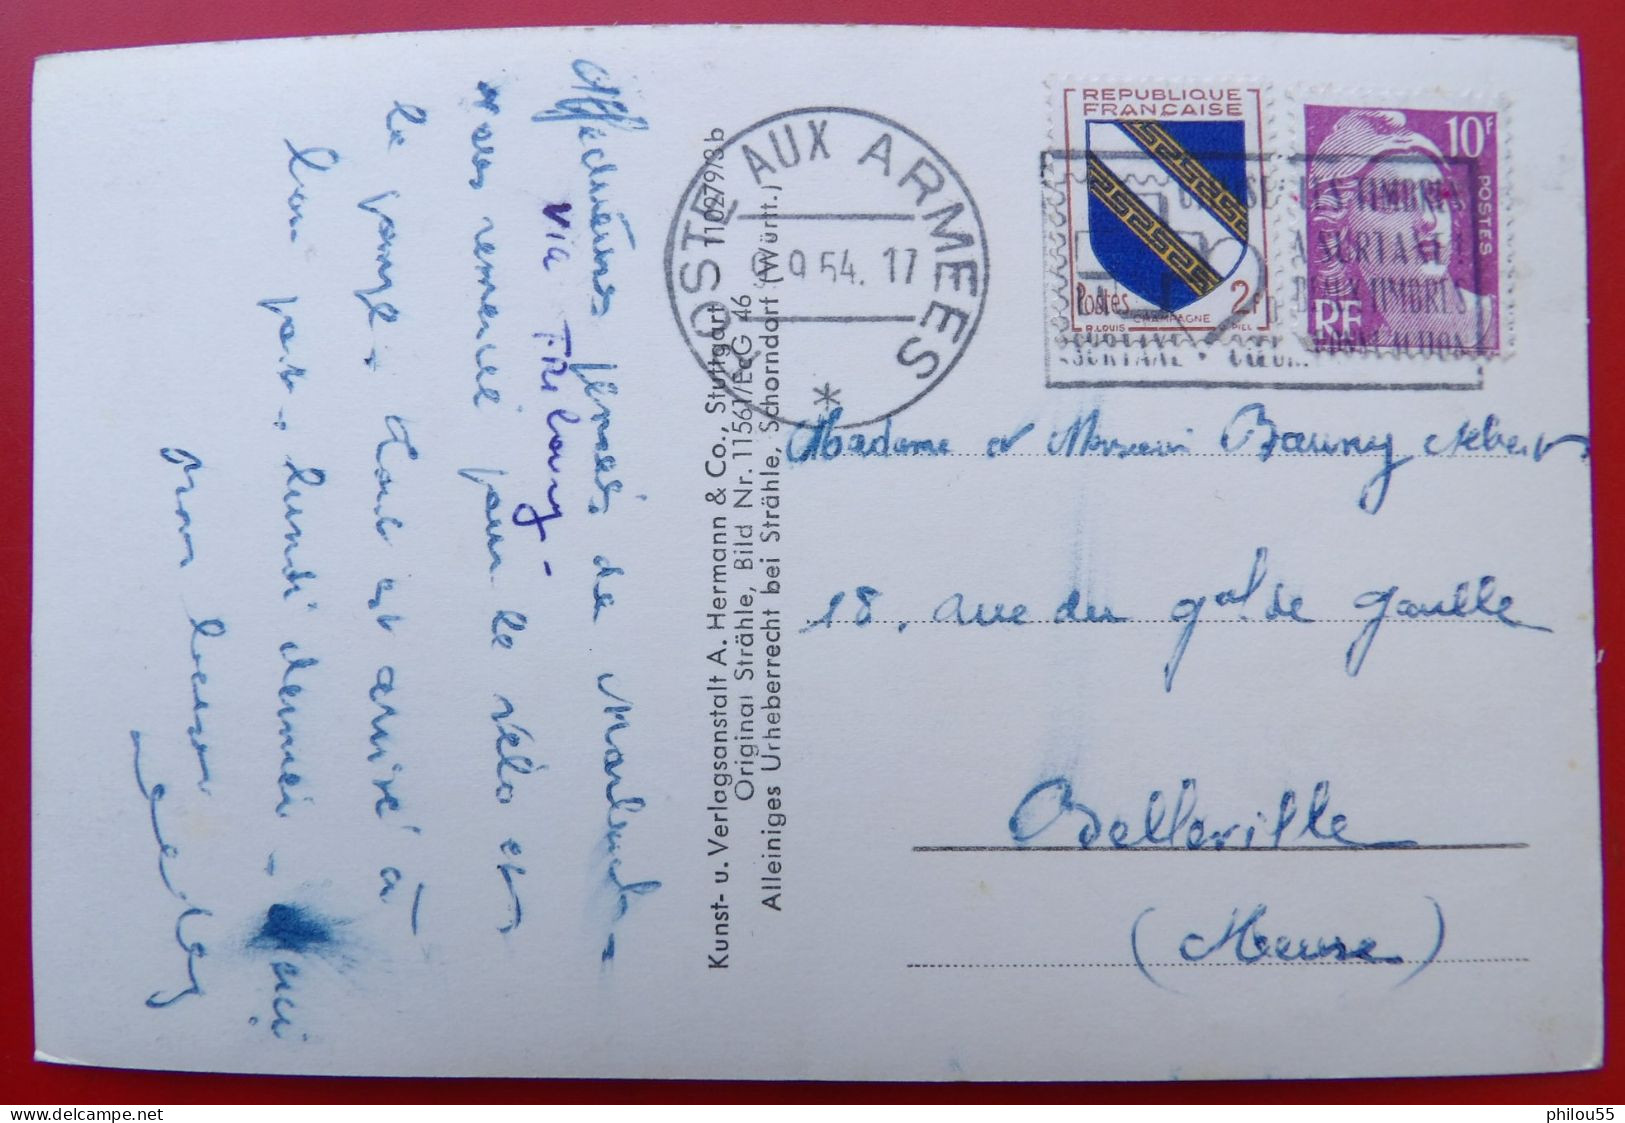 Affectueuses pensées de Marbach -
vous remercie pour le vélo et
VIA Fribourg -
le                 - Tout est arrivé à
bon port. lundi dernier - 
Bons baisers
Kunst- u. Verlagsanstalt A. Hermann & Co., Stuttgart 110279/3b
Original Strähle, Bild Nr. 11561/EdG 46
Alleiniges Urheberrecht bei Strähle, Schorndorf (Württ.)
POSTE AUX ARMEES
9 54. 17
*
REPUBLIQUE
FRANÇAISE
Postes 2F
CHAMPAGNE
R. LOUIS PIEL
10F
POSTES
RF
LES TIMBRES
A SURTAXE
DEUX TIMBRES
SURTAXE •
Madame et Monsieur Albert
18, rue du gal de Gaulle
Belleville
(Meuse)
philou55